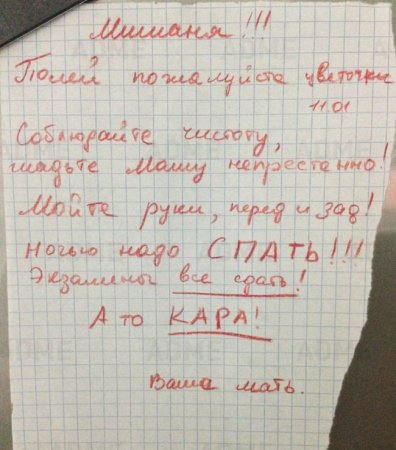 Мишаня!!!
Полей пожалуйста цветочки
11.01
Соблюдайте чистоту,
гладьте Машу непрестанно!
Мойте руки, перед и зад!
Ночью надо СПАТЬ!!!
Экзамены все сдать!
А то КАРА!
Ваша мать.